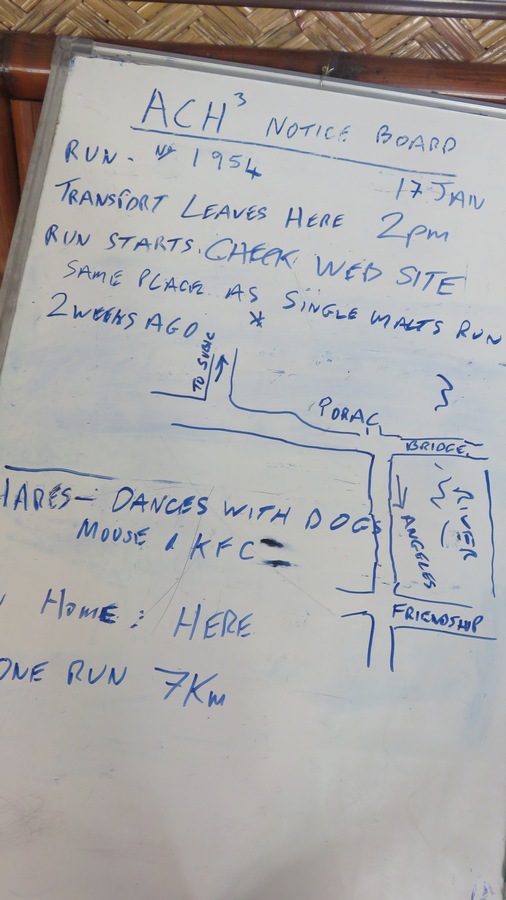 ACH³ NOTICE BOARD
RUN - Nº 1954
17 JAN
TRANSPORT LEAVES HERE 2pm
RUN STARTS. CHECK WEB SITE
SAME PLACE AS SINGLE MALTS RUN
2 WEEKS AGO *
TO SUBIC
PORAC
BRIDGE
RIVER
ANGELES
FRIENDSHIP
HARES - DANCES WITH DOGS
MOUSE & KFC
HOME : HERE
ONE RUN 7Km